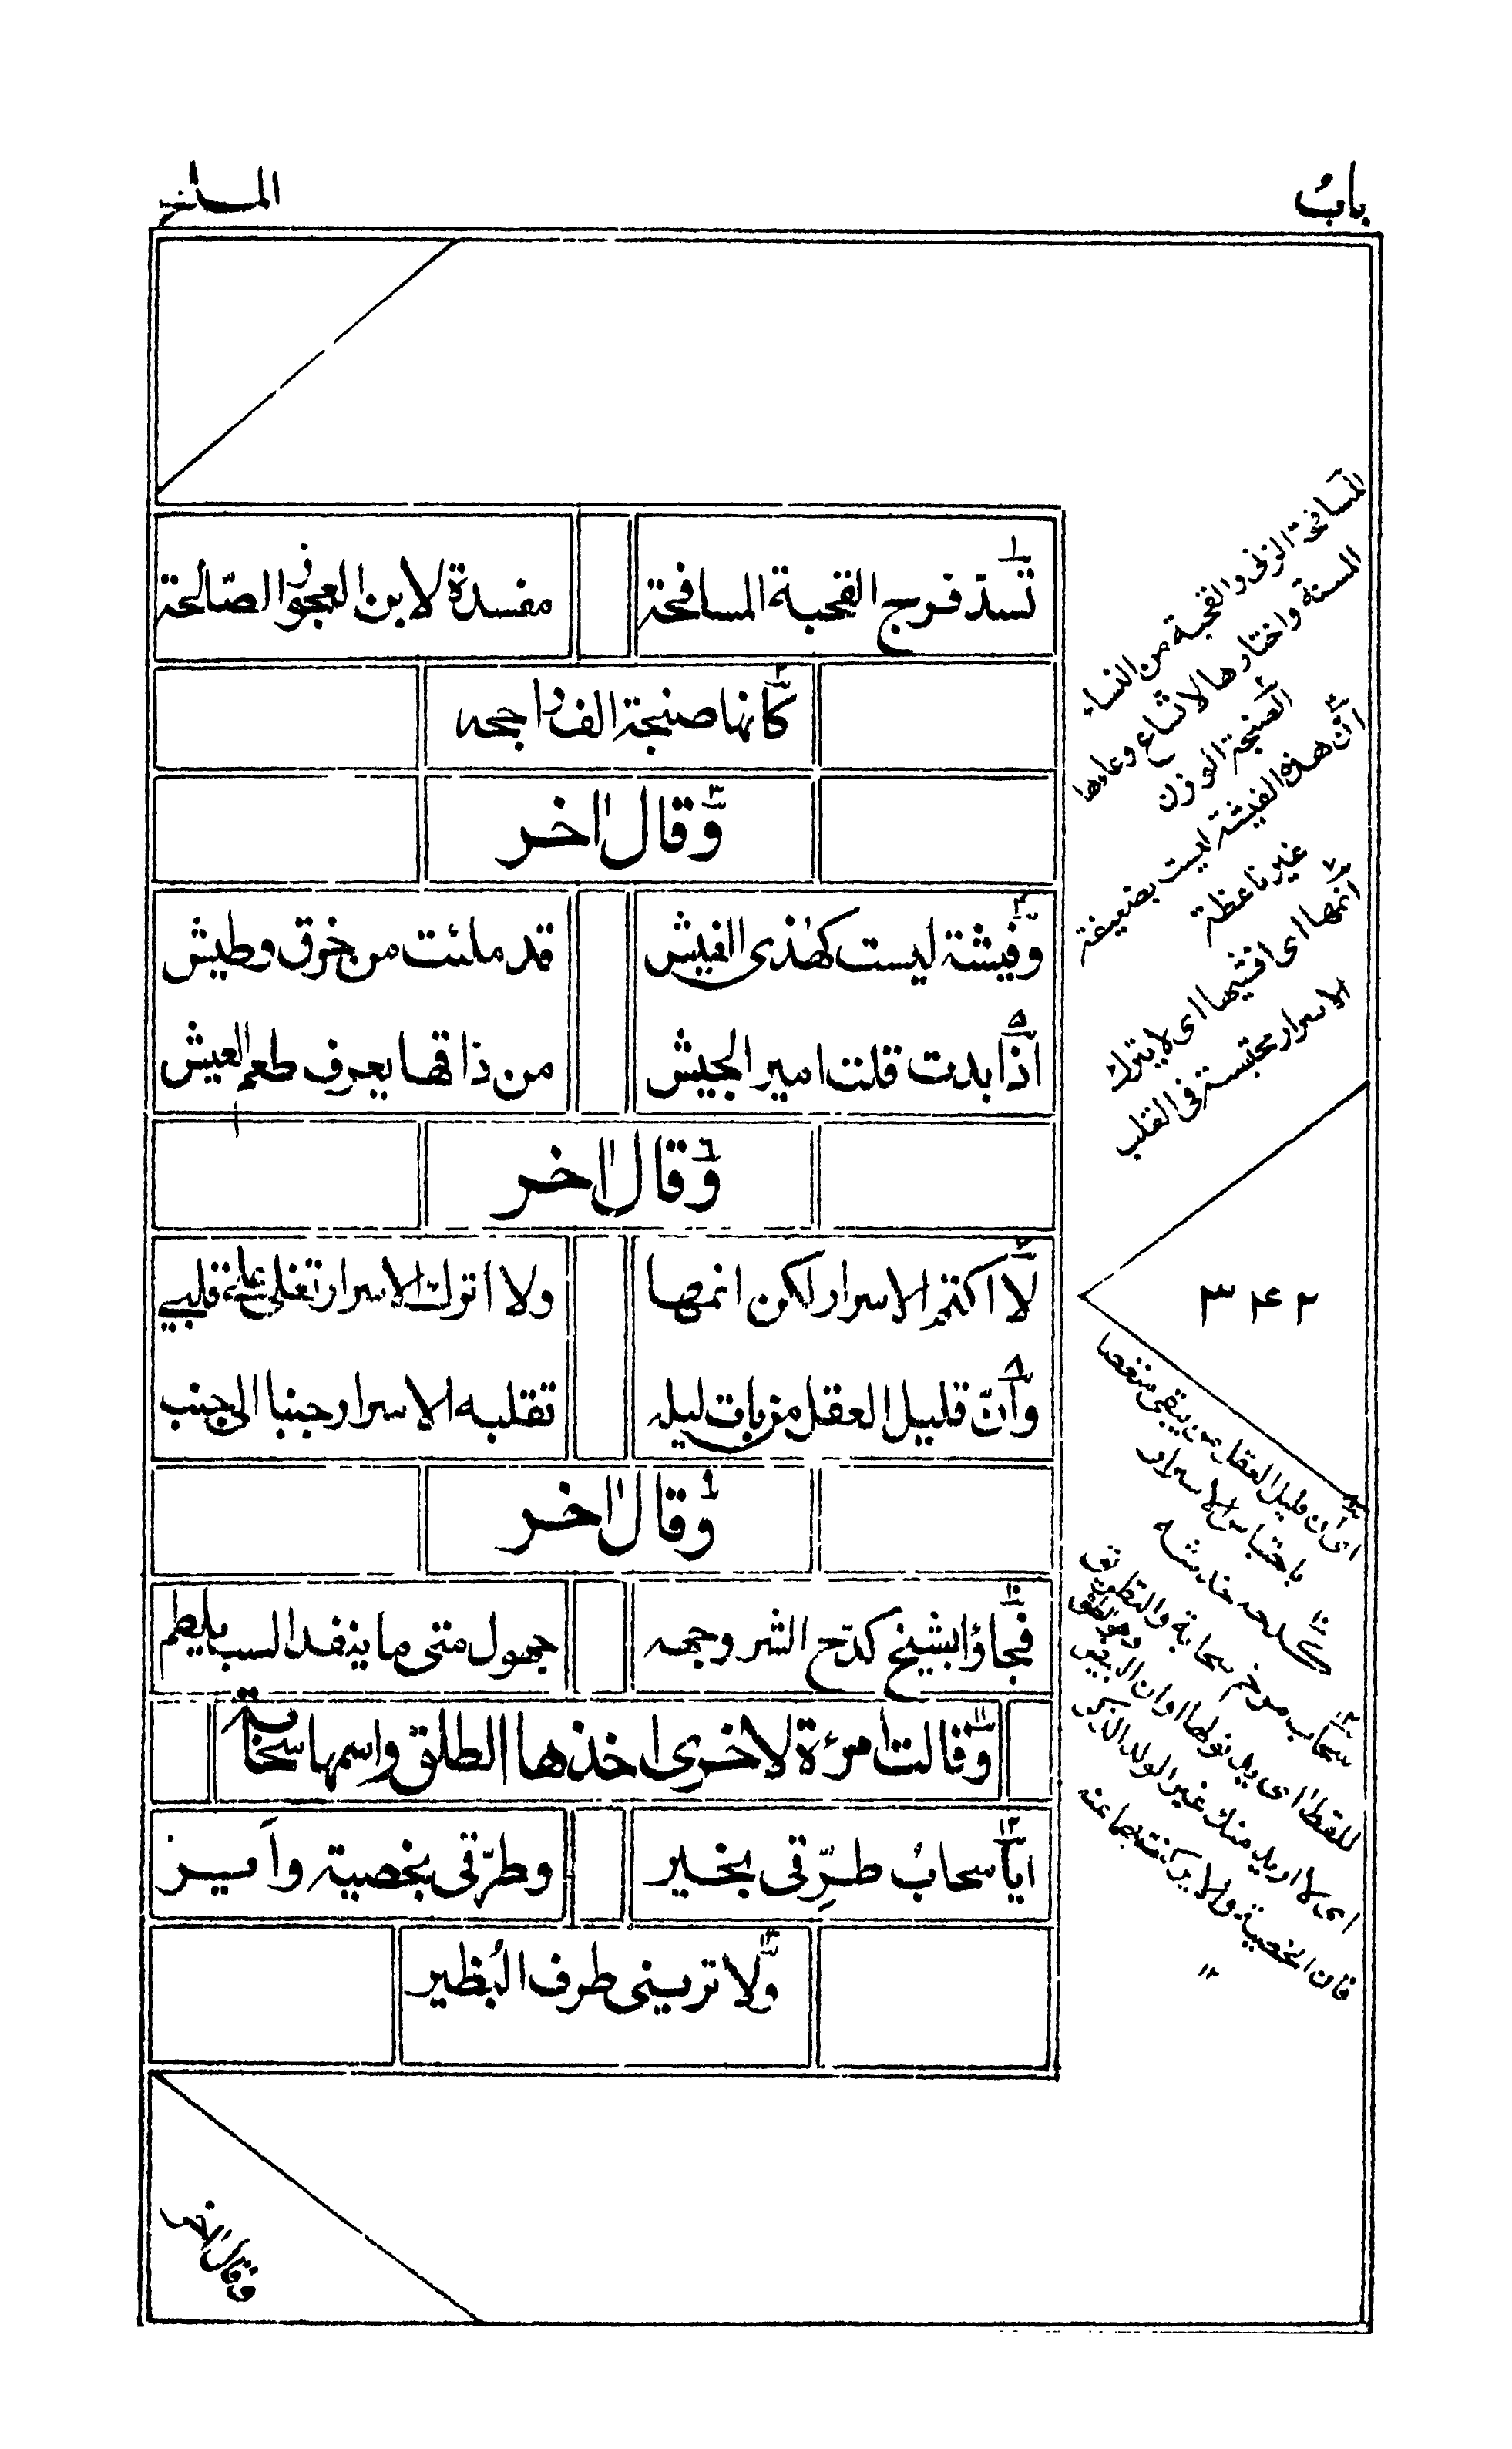 باب
الملح
تسدّ فرج القحبة المسافحة مفسدة لابن العجوز الصّالحة
كأنها صنجة الف راجحه
وقال اٰخر
وفيشة ليست كهٰذى الفيش قد ملئت من خرق وطيش
اذا بدت قلت امير الجيش من ذاقها يعرف طعم العيش
وقال اٰخر
لا اكتم الاسرار لكن انمها ولا اترك الاسرار تغلى على قلبى
وانّ قليل العقل من بات ليله تقلبه الاسرار جنبا الى جنب
وقال اٰخر
فجاؤا بشيخ كدّح الشر وجهه جهول متى ما ينفد السب يلطم
وقالت امرءة لاخرى اخذها الطلق واسمها سحابة
ايا سحابُ طرّقى بخير وطرّقى بخصية وأير
ولا ترينى طرف البُظير
المسافحة الزنى والقحبة من النساء
المسنة واختارها لاتساع وعاءها
الصنجة الوزن
ان هذه الفيشة ليست بضعيفة
غير ناعظة
انمها اى افشيها اى لا يترك
الاسرار محتبسة فى القلب
٣٤٢
اى ان قليل العقل من يبقى منغصا
باحتباس الاسرار
كدحه خدشه
سحاب مرخم سحابة والتطريق
اى لا اريد منك غير الولد الذكر
فان الخصية والاير كنت بهما عنه
١٢
وقال اٰخر